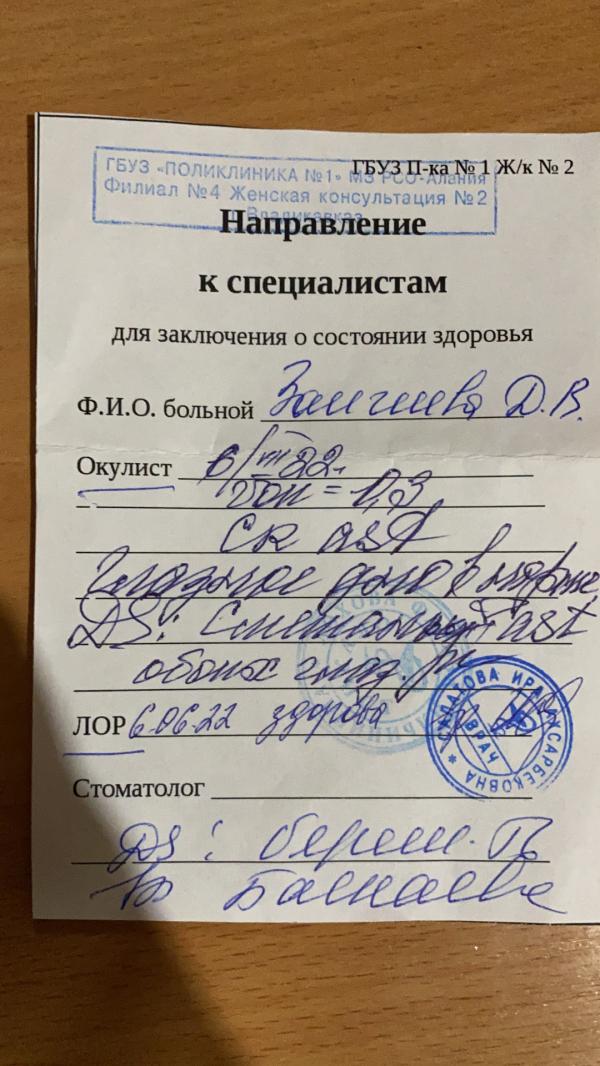 ГБУЗ «ПОЛИКЛИНИКА №1» МЗ РСО-Алания
ГБУЗ П-ка № 1 Ж/к № 2
Филиал №4 Женская консультация №2
Владикавказ
Направление
к специалистам
для заключения о состоянии здоровья
Ф.И.О. больной Д.В.
Окулист 22
= 0,3
ск ast
Глазное дно в норме
DS: ast
обоих глаз.
ЛОР 6.06.22 здорова
ВРАЧ
Стоматолог
DS: берем.